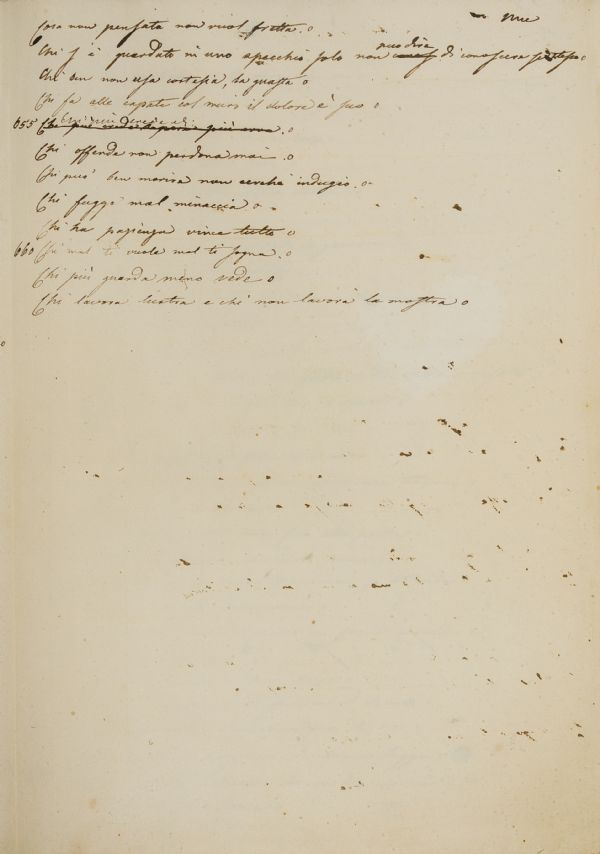 Cosa non pensata non vuol fretta. o
Chi s'è guardato in uno specchio solo non può dire di conoscere se stesso
Chi ben non usa cortesia, la guasta o
Chi fa alle capate col muro il dolore è suo o
655 Chi più
Chi offende non perdona mai. o
Chi può ben morire non cerchi indugio. o
Chi fugge mal minaccia. o
Chi ha pazienza vince tutto o
660 Chi mal ti vuole mal ti sogna. o
Chi più guarda meno vede o
Chi lavora lustra e chi non lavora la mostra o